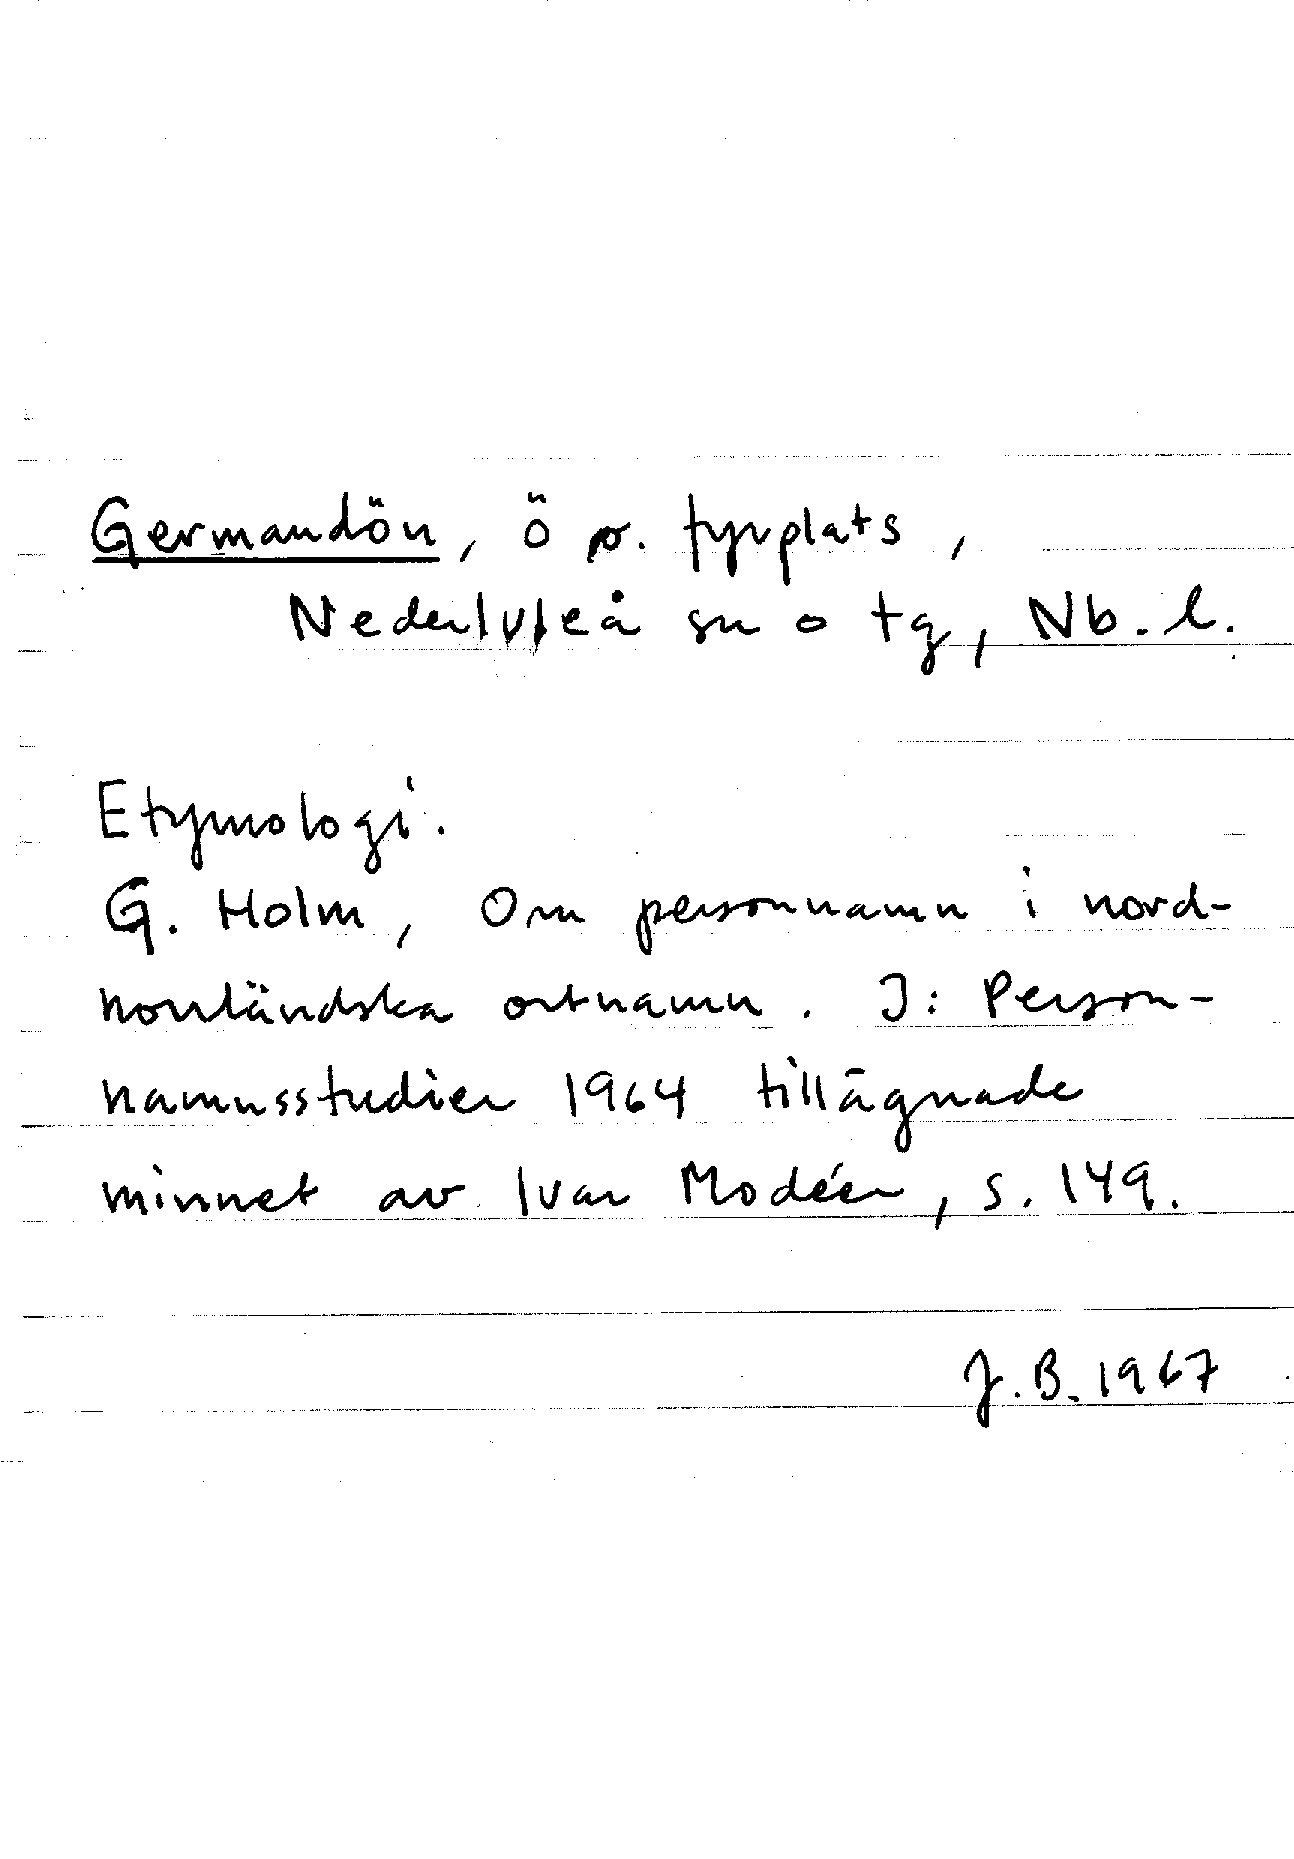 Germandön, ö o. fyrplats,
Nederluleå sn o tg, Nb. l.
Etymologi.
G. Holm, Om personnamn i nord-
norrländska ortnamn. I: Person-
namnsstudier 1964 tillägnade
minnet av Ivar Modéer, s. 149.
J. B. 1967